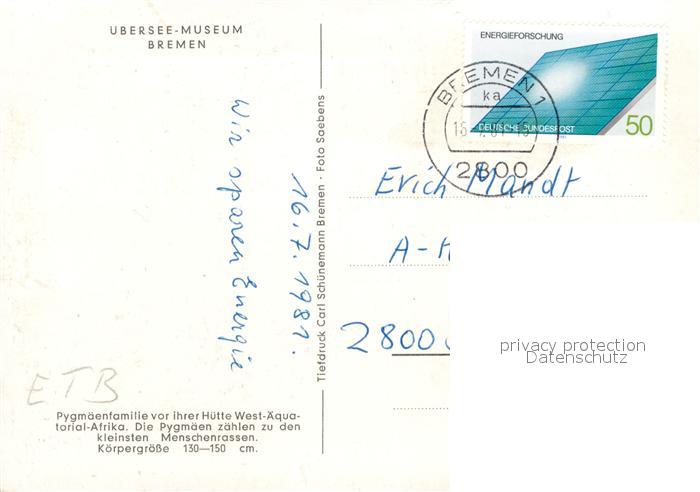 ÜBERSEE-MUSEUM
BREMEN
ENERGIEFORSCHUNG
DEUTSCHE BUNDESPOST
50
BREMEN 1
ka
2800
Wir sparen Energie
16.7.1981.
Tiefdruck Carl Schünemann Bremen · Foto Saebens
Erich Mandt
A-
2800
privacy protection
Datenschutz
ETB
Pygmäenfamilie vor ihrer Hütte West-Äqua-
torial-Afrika. Die Pygmäen zählen zu den
kleinsten Menschenrassen.
Körpergröße 130—150 cm.